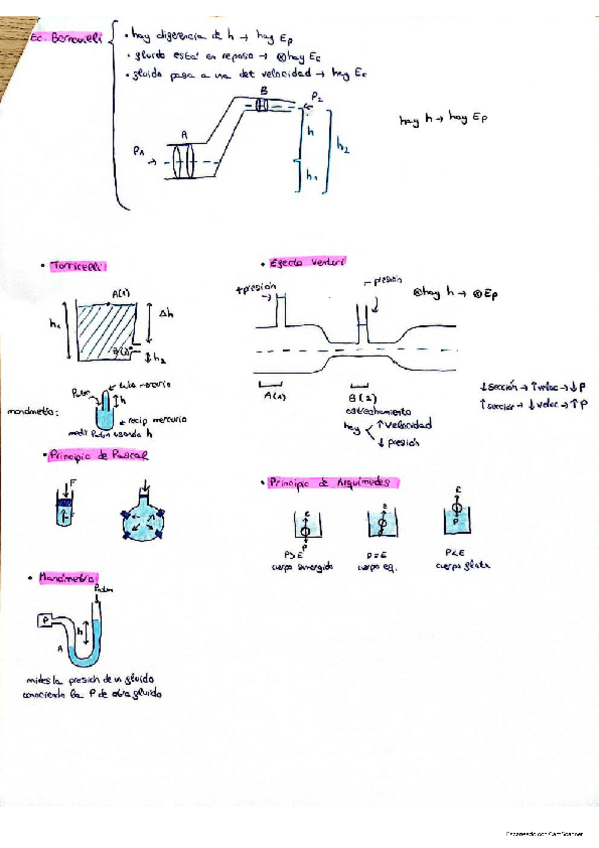 Ec. Bernouelli
• hay diferencia de h → hay Ep
• fluido está en reposo → ⊗hay Ec
• fluido pasa a una det velocidad → hay Ec
B
P2
A
P1
h
h1
h2
hay h → hay Ep
• Torricelli
A(1)
h1
Δh
B(2)
h2
manómetro:
Patm
tubo mercurio
h
recip mercurio
medir Patm usando h
• Efecto Venturi
+presión
- presión
⊗hay h → ⊗Ep
A(1)
B(2)
estrechamiento
hay
↑velocidad
↓ presión
↓sección → ↑veloc → ↓P
↑sección → ↓veloc → ↑P
• Principio de Pascal
F
F
• Principio de Arquímedes
E
P
P>E
cuerpo sumergido
E
P
P=E
cuerpo eq.
E
P
P<E
cuerpo flota
• Manómetro
Patm
P
h
A
mides la presión de un fluido
conociendo la P de otro fluido
Escaneado con CamScanner